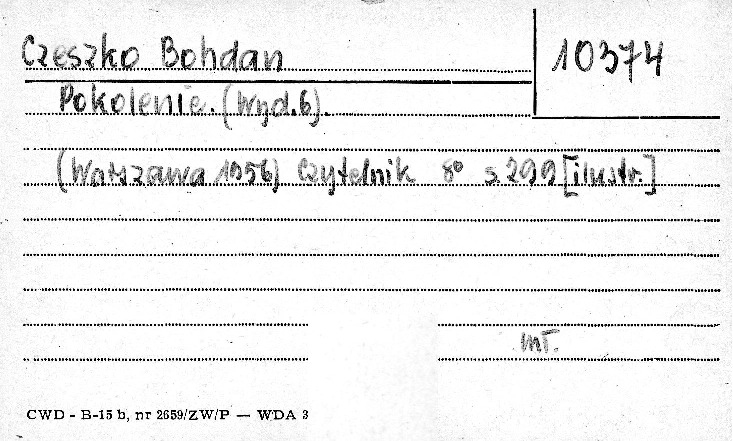 Czeszko Bohdan
10374
Pokolenie. (Wyd. 6).
(Warszawa 1956) Czytelnik 8° s. 299 [ilustr.]
mT.
CWD - B-15 b, nr 2659/ZW/P — WDA 3